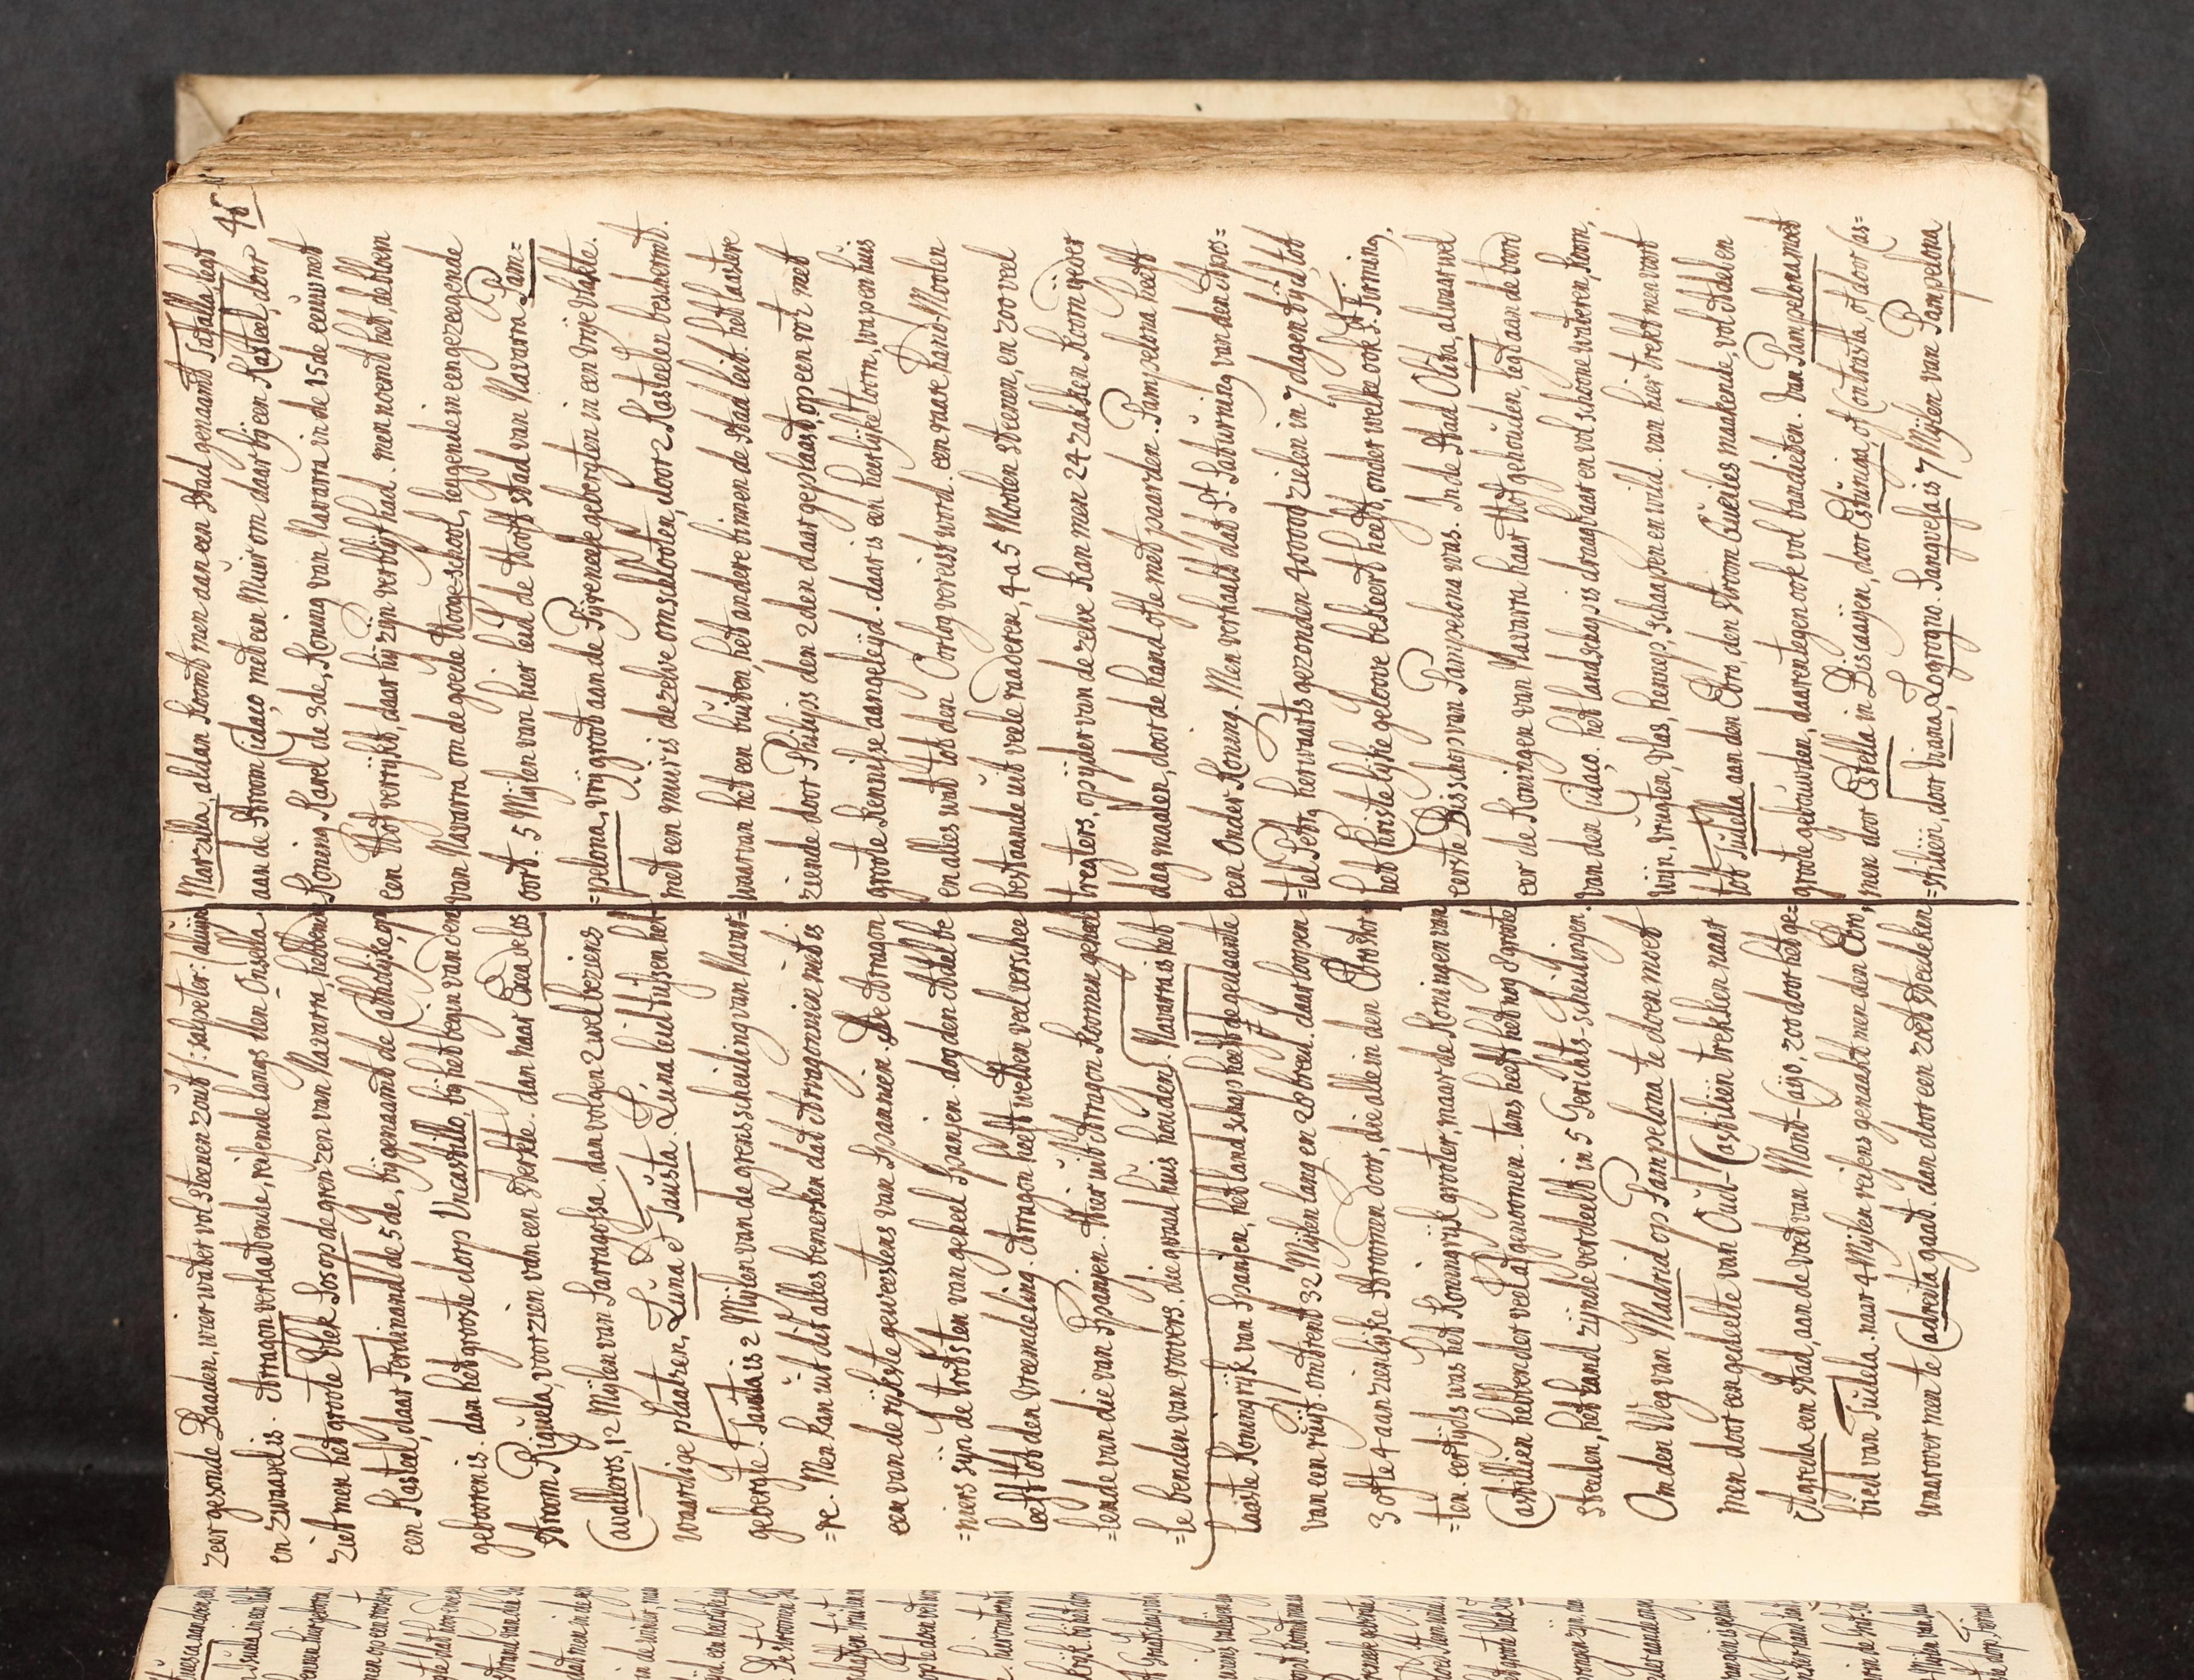 45
zeer gesonde Baaden, wier water vol steenen zout /: salpeter: / aluijn
en zwavel is. Arragon verlaatende, rijsende langs den Onsella
ziet men het groote Vlek Sos op de grenzen van Navarra, hebbende
een Kasteel, daar Ferdinand de 5de, bijgenaamt de Catholijke, op
gebooren is. dan het groote dorp Uncastillo bij het begin van den
stroom Riguela, voorzien van een sterkte. dan naar Exea de los
Cavalleros, 12 Mijlen van Sarragossa. dan volgen 2 wel beziens
waardige plaatzen, Luna et Tausta. Luna leid tussen het
gebergte. Tausta is 2 Mijlen van de grensscheiding van Navar=
=re. Men kan uit dit alles bemerken dat Arragonnien niet is
een van de rijkste geweestens van Spannien. De Arragon
=niers sijn de trotsten van geheel Spansen. dog den Adel be
leeft tot den Vreemdeling. Arragon heeft wetten veel verschee
=lende van die van Spansen. Hier uit Arragon komen geheel
=le benden van roovers, die gvasd huis houden. Navarra is het
laaste Koningrijk van Spanjen, het landschap heeft de gedaante
van een ruijt. omtrent 32 Mijlen lang en 28 breed. daar loopen
3 ofte 4 aanzienlijke stroomen door, die alle in den Ebro stor=
=ten. eertijds was het Koningrijk grooter, maar de Koningen van
Castillien hebben der veel afgenoomen. tans heeft het nog 8 groote
steeden, het land zijnde verdeelt in 5 Gerichts-scheidingen.
Om den Weg van Madrid op Pampelona te doen moet
men door een gedeelte van Oud-Castiliën trekken naar
Agreda een stad, aan de voet van Mont-Cayo, zoo door het ge=
bied van Tudela. naar 4 Mijlen reisens genaakt men den Ebro,
waarover men te Cadreita gaat. dan door een zoet steedeken
Marzilla, aldan koomt men aan een stad genaamt Tafalla legt
aan de stroom Cidaco, met een Muur om daar bij een Kasteel, door
Koning Karel de 3de, Koning van Navarra in de 15de eeuw met
een Hof verrijkt, daar hij zijn verblijf had. men noemt het, de bloem
van Navarra om de goede Hooge-school, leggende in een gezeegende
oort. 5 Mijlen van hier leid de Hooft stad van Navarra Pam=
=pelona, vrij groot aan de Pijreneese gebergten in een vrije vlakte.
met een muir is dezelve omslooten, door 2 Kasteelen beschermt.
waarvan het een buiten, het andere binnen de stad leid. het laatere
ziende door Philips den 2den daar geplaast, op een rot met
groote kennisse aangeleijd. daar is een heerlijke toorn, wapen huis
en alles wat tot den Oorlog vereist word. een rare hand-Moolen
bestaande uit veele raaderen, 4 a 5 Moolen steenen, en zoo veel
treghters, op ijder van dezelve kan men 24 zakken koorn ijeder
dag maalen, door de hand ofte met paarden. Pampelona heeft
een Onder Koning. Men verhaalt dat St. Saturning van den Apos=
=tel Petr9 herwaarts gezonden 40000 zielen in 7 dagen tijd tot
het Christelijke geloove bekeert heeft, onder welke ook St. Firming,
eerste Bisschop van Pampelona was. In de stad Olita, alwaar wel
eer de Koningen van Navarra haar Hof gehouden, legt aan de boord
van den Cidaco. het landschap is draagbaar en vol schoone wateren, koorn,
wijn, vrugten, vlas, hennep, schaapen en wild. van hier trekt men voort
tot Tudela aan den Ebro, den stroom Queiles maakende, vol edelen
groote gebouwen, daarentegen ook vol bandieten. Van Pampelona moet
men door Estella in Biscaijen, door Estuniga of Contrasta, of door Cas=
=stiliën, door Viana, Logrogno. Sanguesa is 7 Mijlen van Pampelona